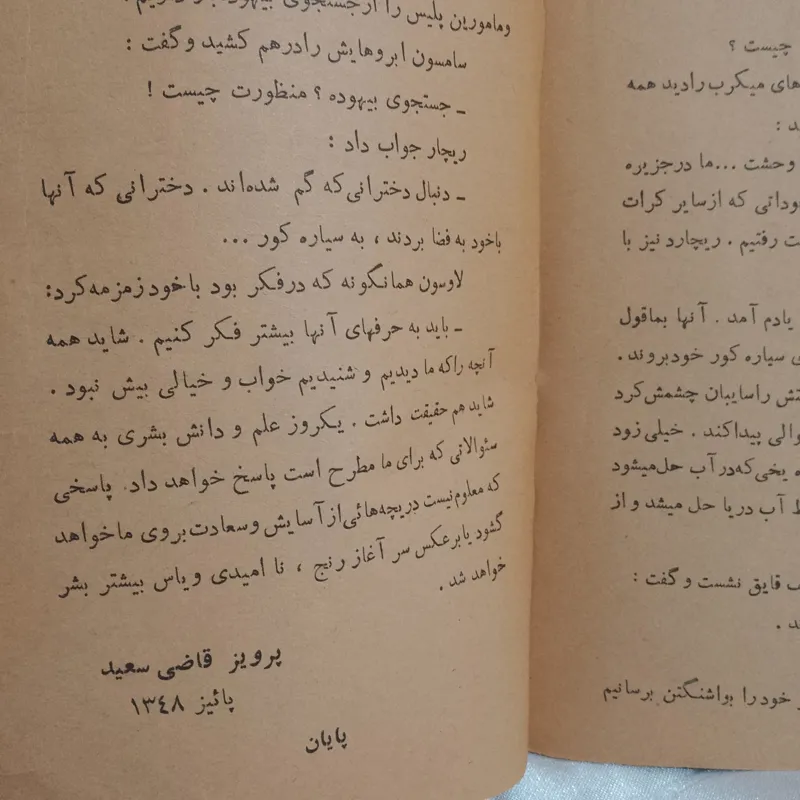 چیست ؟
های میکرب رادید همه
وحشت ... ما درجزیره
که ازسایر کرات
رفتیم . ریچارد نیز با
یادم آمد . آنها بماقول
سیاره کور خودبروند .
راسایبان چشمش کرد
پیداکند . خیلی زود
یخی که در آب حل میشود
آب دریا حل میشد و از
قایق نشست و گفت :
خودرا بواشنگتن برسانیم
ومامورین پلیس را ازجستجوی
سامسون ابروهایش رادرهم کشید وگفت :
ـ جستجوی بیهوده ؟ منظورت چیست !
ریچار جواب داد :
ـ دنبال دخترانی که گم شده‌اند . دخترانی که آنها
باخود به فضا بردند ، به سیاره کور ...
لاوسون همانگونه که درفکر بود باخود زمزمه کرد:
ـ باید به حرفهای آنها بیشتر فکر کنیم . شاید همه
آنچه راکه ما دیدیم و شنیدیم خواب و خیالی بیش نبود .
شاید هم حقیقت داشت . یکروز علم و دانش بشری به همه
سئوالاتی که برای ما مطرح است پاسخ خواهد داد. پاسخی
که معلوم نیست دریچه‌هائی از آسایش وسعادت بروی ماخواهد
گشود یا برعکس سر آغاز رنج ، نا امیدی ویاس بیشتر بشر
خواهد شد .
پرویز قاضی سعید
پائیز ۱۳۴۸
پایان